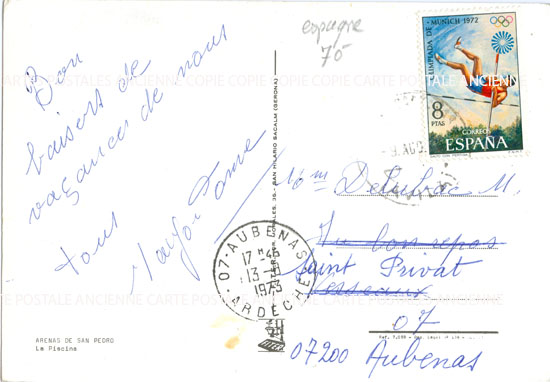 espagne
75
OLIMPIADA DE MUNICH 1972
8
PTAS
CORREOS
ESPAÑA
Bon
baisers de
vacances de nous
tous
COPIE CARTE POSTALE ANCIENNE COPIE CARTE POSTALE ANCIENNE
SAN HILARIO SACALM (GERONA)
AGO.
Mme Delubac M.
Au bon repos
Saint Privat
Vesseaux
07
07200 Aubenas
07 - AUBENAS
17 H 45
13 - 8
1973
ARDECHE
CARTE POSTALE ANCIENNE CARTE POSTALE ANCIENNE
ARENAS DE SAN PEDRO
La Piscina